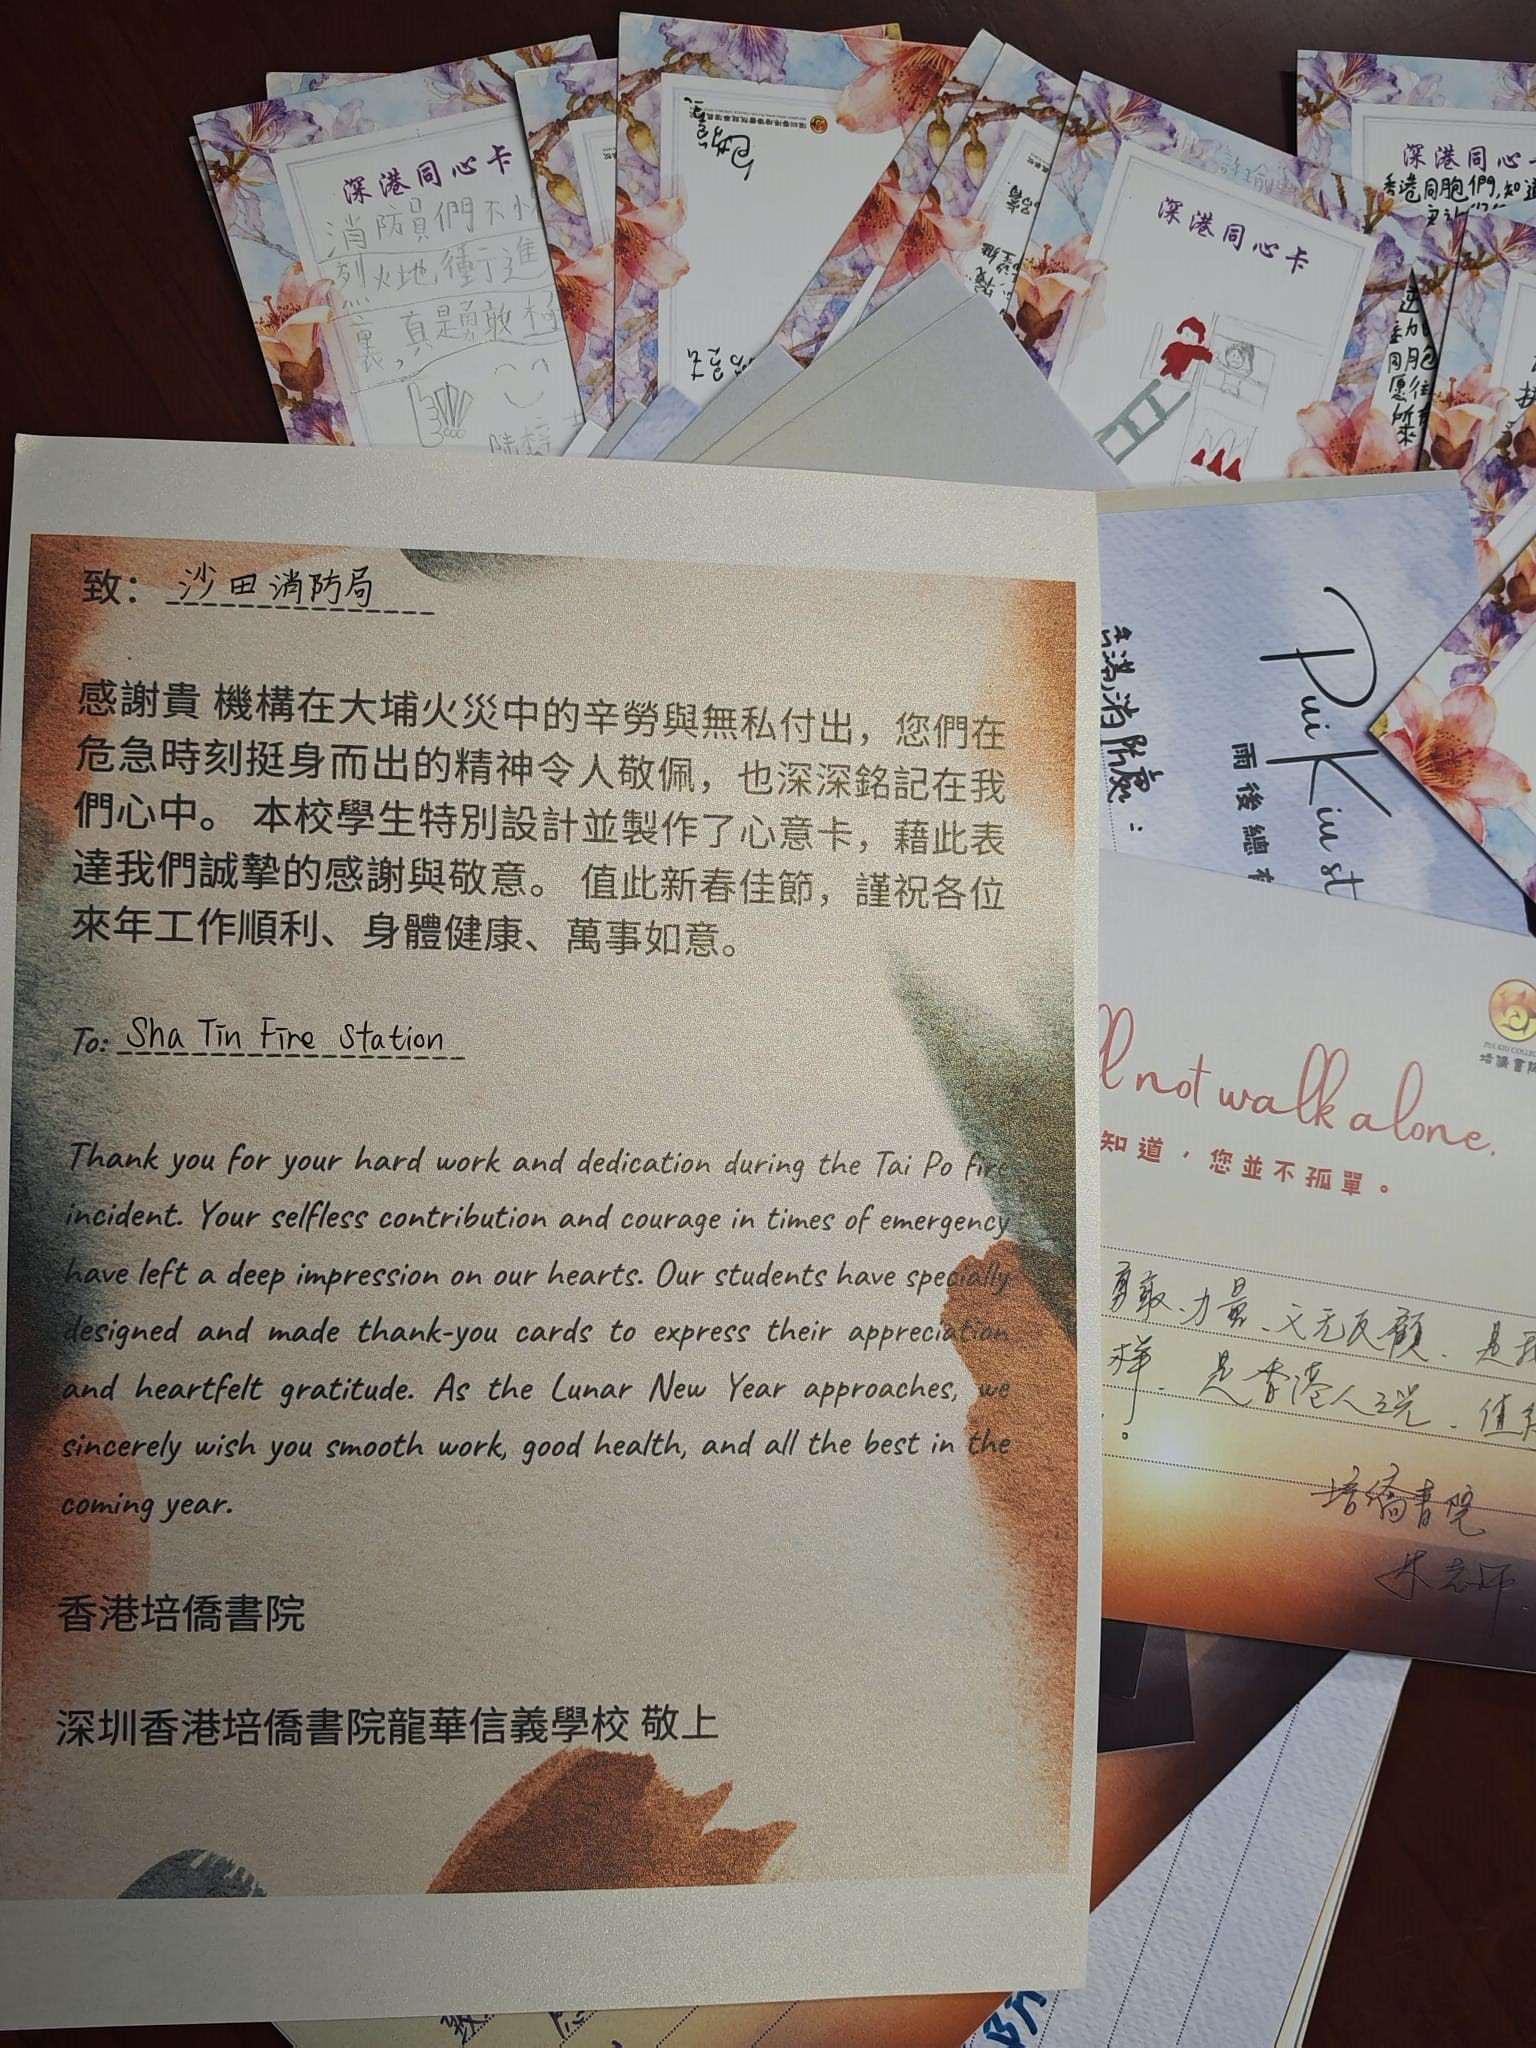 深港同心卡
消防員們不怕
烈火地衝行進
裏,真是勇敢極
深港同心卡
深港同心卡
香港同胞們,知道
致: 沙田消防局
感謝貴 機構在大埔火災中的辛勞與無私付出，您們在
危急時刻挺身而出的精神令人敬佩，也深深銘記在我
們心中。 本校學生特別設計並製作了心意卡，藉此表
達我們誠摯的感謝與敬意。 值此新春佳節，謹祝各位
來年工作順利、身體健康、萬事如意。
To: Sha Tin Fire Station
Thank you for your hard work and dedication during the Tai Po fire
incident. Your selfless contribution and courage in times of emergency
have left a deep impression on our hearts. Our students have specially
designed and made thank-you cards to express their appreciation
and heartfelt gratitude. As the Lunar New Year approaches, we
sincerely wish you smooth work, good health, and all the best in the
coming year.
香港培僑書院
深圳香港培僑書院龍華信義學校 敬上
Pui Kiu st
雨後總有
消防處：
PUI KIU COLLEGE
培僑書院
ll not walk alone.
知道，您並不孤單。
勇敢、力量、义无反顧、是
是香港人之光、值
培僑書院